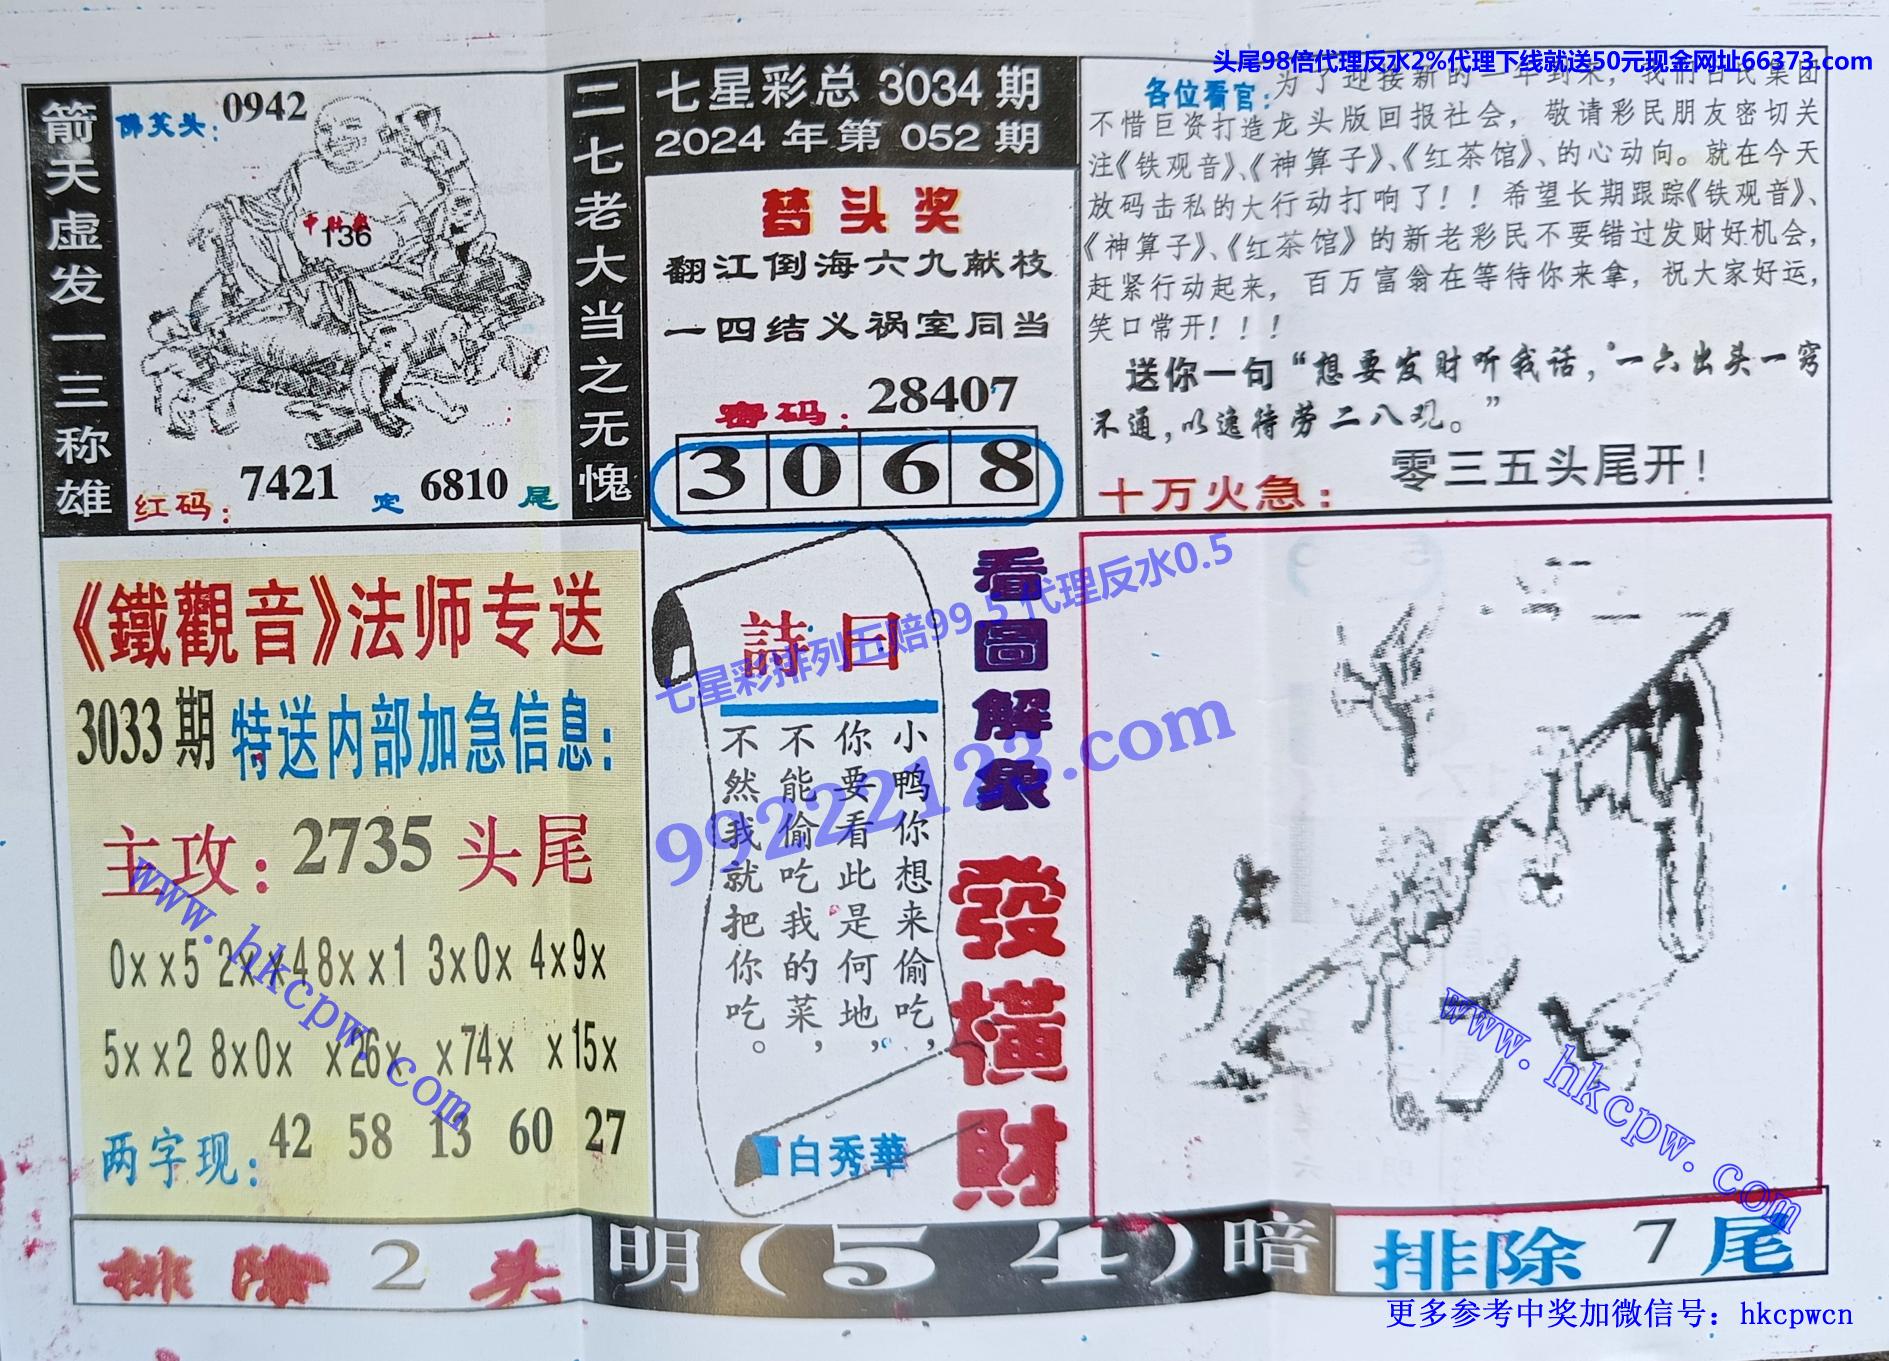 头尾98倍代理反水2%代理下线就送50元现金网址66373.com
箭天虚发一三称雄
佛笑头：0942
中肚
136
红码：7421 定 6810 尾
二七老大当之无愧
七星彩总 3034 期
2024 年第 052 期
头奖
翻江倒海六九献枝
一四结义祸室同当
密码：28407
3 0 6 8
各位看官：为了迎接新的一年到来，我们古民集团
不惜巨资打造龙头版回报社会，敬请彩民朋友密切关
注《铁观音》、《神算子》、《红茶馆》、的心动向。就在今天
放码击私的大行动打响了！！希望长期跟踪《铁观音》、
《神算子》、《红茶馆》的新老彩民不要错过发财好机会，
赶紧行动起来，百万富翁在等待你来拿，祝大家好运，
笑口常开！！！
送你一句“想要发财听我话，一六出头一窍
不通，以逸待劳二八观。”
十万火急：零三五头尾开！
《鐵觀音》法师专送
3033期 特送内部加急信息：
主攻：2735 头尾
0xx5 2xx4 8xx1 3x0x 4x9x
5xx2 8x0x x26x x74x x15x
两字现：42 58 13 60 27
詩曰
小鸭你想来偷吃，
你要看此是何地，
不能偷吃我的菜，
不然我就把你吃。
白秀華
看圖解象
發橫財
七星彩排列五赔99.5 代理反水0.5
99222123.com
www.hkcpw.com
www.hkcpw.com
排除 2 头
明(54)暗
排除 7 尾
更多参考中奖加微信号：hkcpwcn